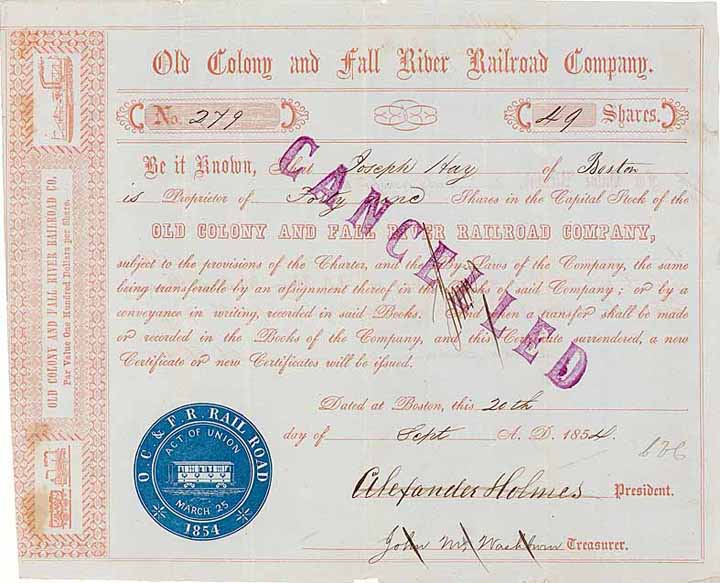 Old Colony and Fall River Railroad Company.
No. 279
49 Shares.
Be it Known, that Joseph Hay of Boston
is Proprietor of Forty nine Shares in the Capital Stock of the
OLD COLONY AND FALL RIVER RAILROAD COMPANY,
subject to the provisions of the Charter, and the By-Laws of the Company, the same
being transferable by an assignment thereof in the Books of said Company; or by a
conveyance in writing, recorded in said Books. And when a transfer shall be made
or recorded in the Books of the Company, and this Certificate surrendered, a new
Certificate or new Certificates will be issued.
CANCELLED
Dated at Boston, this 20th
day of Sept A. D. 1854.
Alexander Holmes President.
John M. Washburn Treasurer.
O. C. & F. R. RAIL ROAD
ACT OF UNION
MARCH 25
1854
OLD COLONY AND FALL RIVER RAILROAD CO.
Par Value One Hundred Dollars per Share.